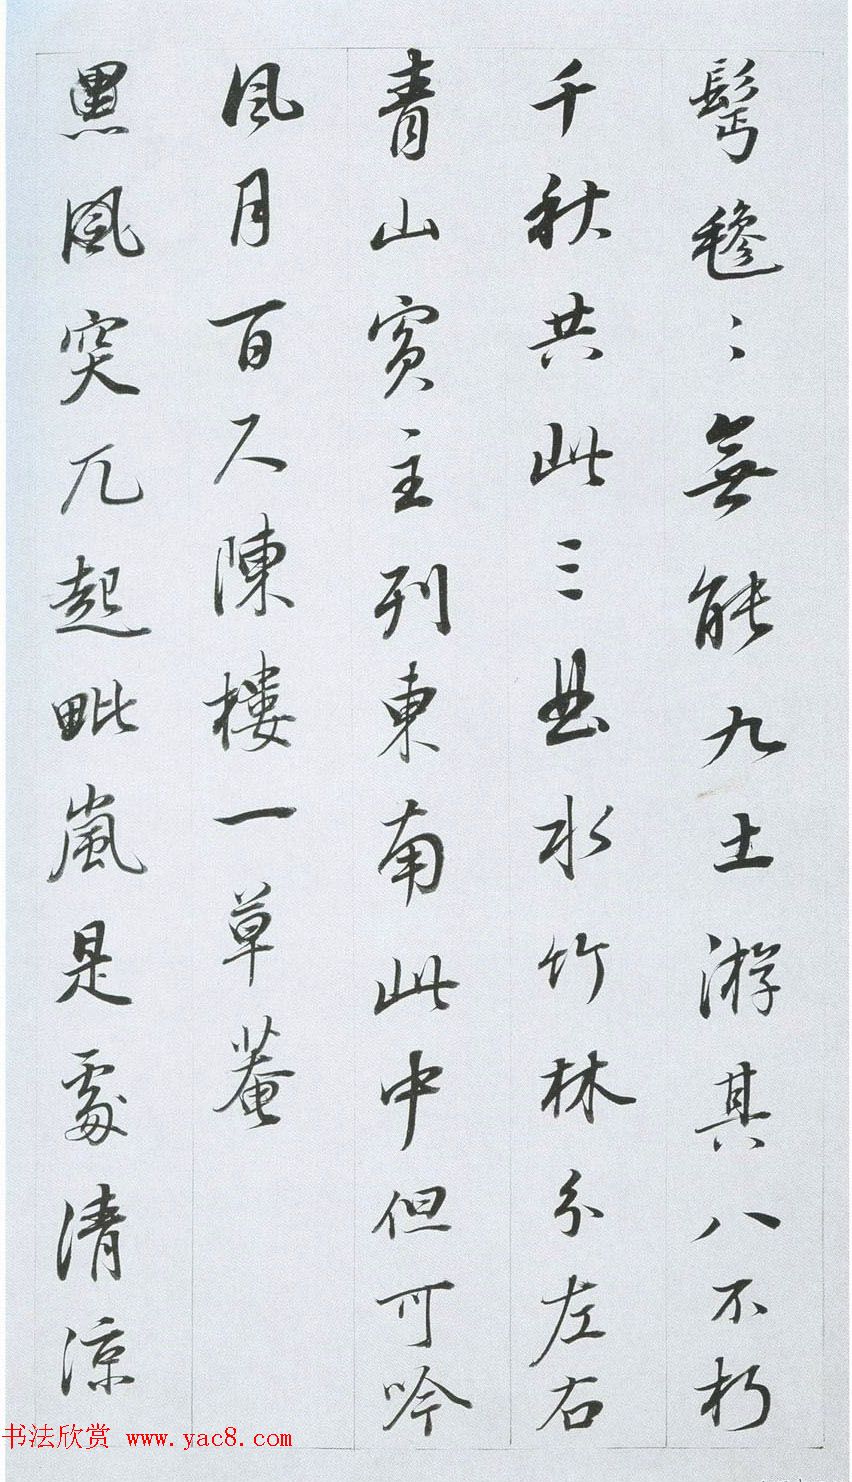 鬢毿〻無能九土游其八不朽
千秋共此三曲水竹林分左右
青山賓主列東南此中但可吟
風月百尺陳樓一草菴
黑風突兀起毗嵐是處清涼
书法欣赏 www.yac8.com